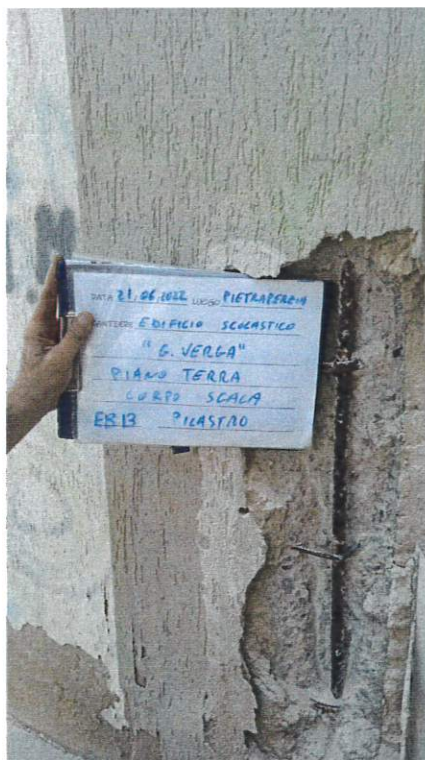 DATA 21.06.2022 LUOGO PIETRAPERZIA
CANTIERE EDIFICIO SCOLASTICO
"G. VERGA"
PIANO TERRA
CORPO SCALA
ER13 PILASTRO